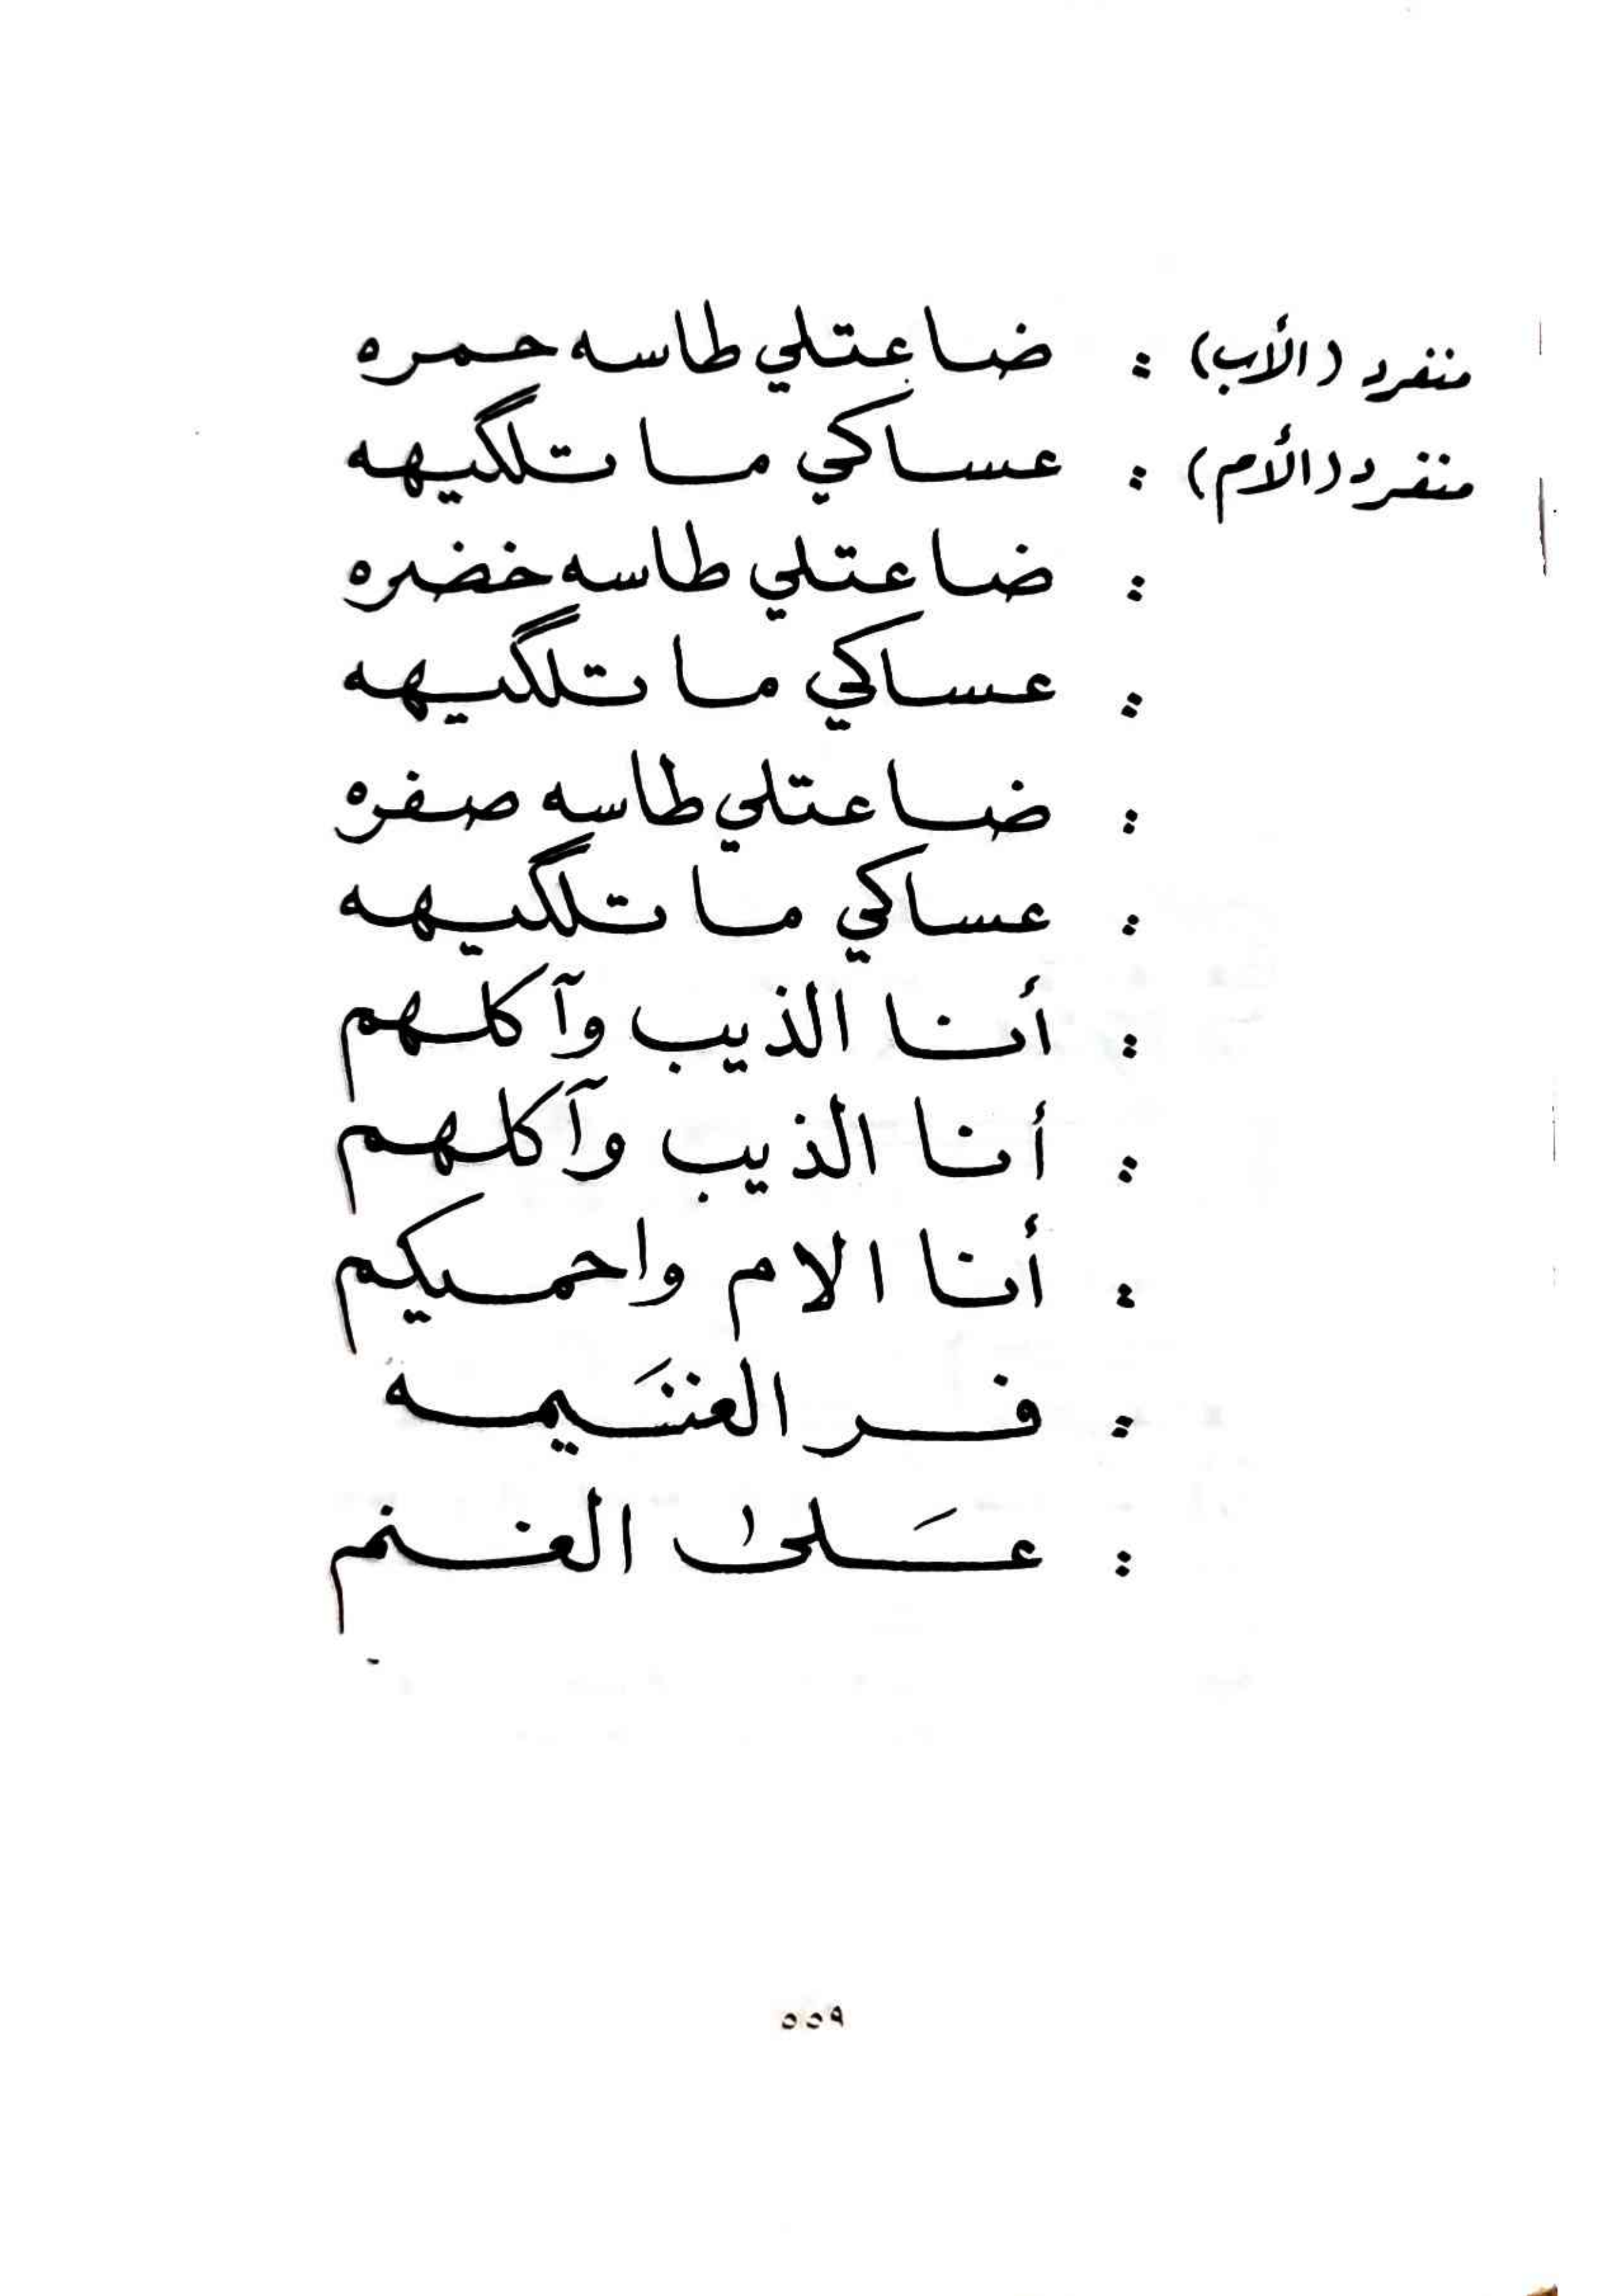 منفرد (الأب) : ضاعتلي طاسه حمره
منفرد (الأم) : عساكي ما تلگيهه
: ضاعتلي طاسه خضره
: عساكي ما تلگيهه
: ضاعتلي طاسه صفره
: عساكي ما تلگيهه
: أنا الذيب وآكلهم
: أنا الذيب وآكلهم
: أنا الام واحميكم
: فر الغنَيمه
: عَلى الغنم
٥٥٩